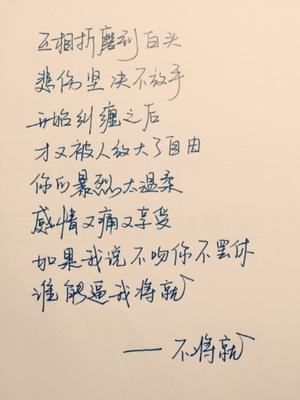 互相折磨到白头
悲伤坚决不放手
开始纠缠之后
才又被人放大了自由
你的暴烈太温柔
感情又痛又享受
如果我说不吻你不罢休
谁能逼我将就
——不将就